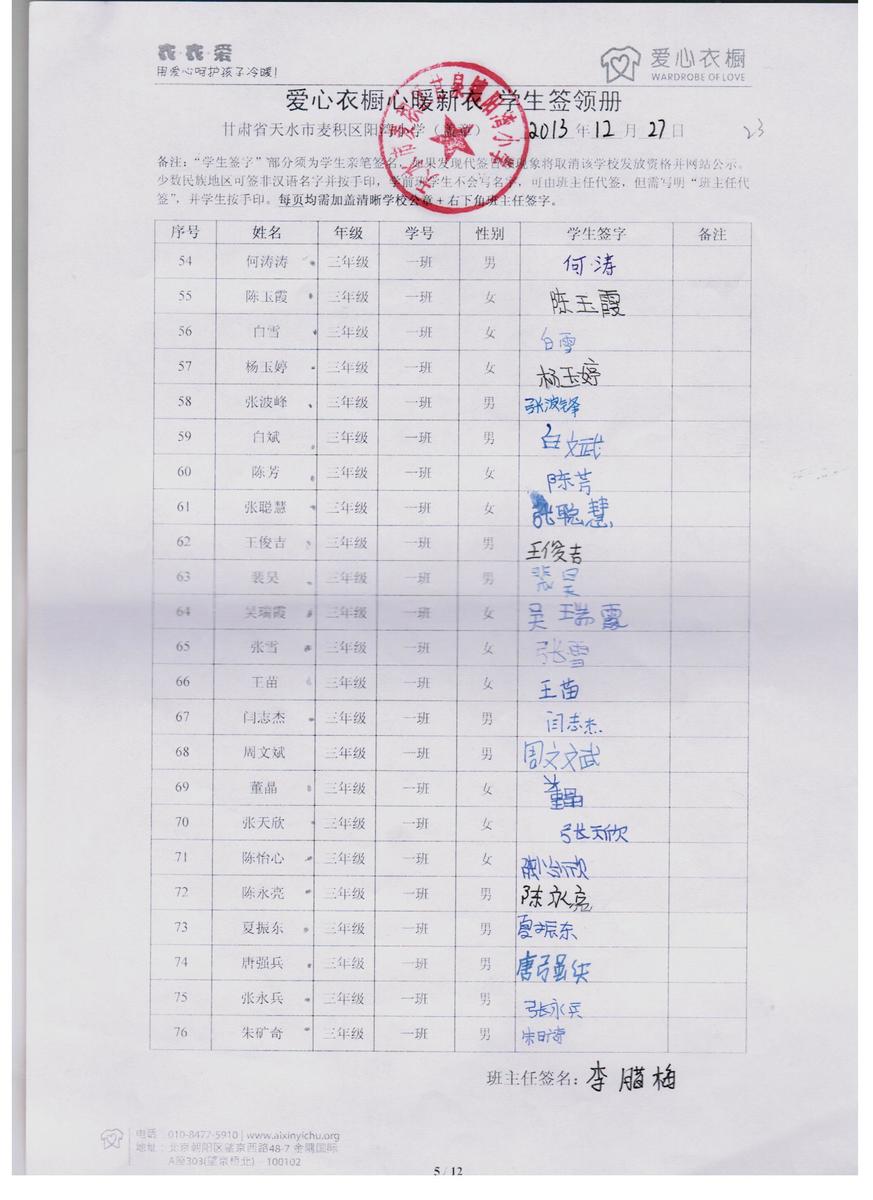 衣·衣·爱
用爱心呵护孩子冷暖！
爱心衣橱
WARDROBE OF LOVE
爱心衣橱心暖新衣 学生签领册
甘肃省天水市麦积区阳湾小学（盖章） 2013 年 12 月 27 日 23
备注：“学生签字”部分须为学生亲笔签名，如果发现代签冒领现象将取消该学校发放资格并网站公示。
少数民族地区可签非汉语名字并按手印，学前班学生不会写名字，可由班主任代签，但需写明“班主任代
签”，并学生按手印。每页均需加盖清晰学校公章+右下角班主任签字。
序号 姓名 年级 学号 性别 学生签字 备注
54 何涛涛 三年级 一班 男 何涛
55 陈玉霞 三年级 一班 女 陈玉霞
56 白雪 三年级 一班 女 白雪
57 杨玉婷 三年级 一班 女 杨玉婷
58 张波峰 三年级 一班 男 张波锋
59 白斌 三年级 一班 男 白文武
60 陈芳 三年级 一班 女 陈芳
61 张聪慧 三年级 一班 女 张聪慧
62 王俊吉 三年级 一班 男 王俊吉
63 裴吴 三年级 一班 男 裴昊
64 吴瑞霞 三年级 一班 女 吴瑞霞
65 张雪 三年级 一班 女 张雪
66 王苗 三年级 一班 女 王苗
67 闫志杰 三年级 一班 男 闫志杰
68 周文斌 三年级 一班 男 周文文武
69 董晶 三年级 一班 女 董晶
70 张天欣 三年级 一班 女 张天欣
71 陈怡心 三年级 一班 女
72 陈永亮 三年级 一班 男 陈永亮
73 夏振东 三年级 一班 男 夏振东
74 唐强兵 三年级 一班 男 唐强兵
75 张永兵 三年级 一班 男 张永兵
76 朱矿奇 三年级 一班 男 朱旷奇
班主任签名：李腊梅
电话：010-8477-5910 | www.aixinyichu.org
地址：北京朝阳区望京西路48-7 金隅国际
A座303(望京桥北) - 100102
5 / 12